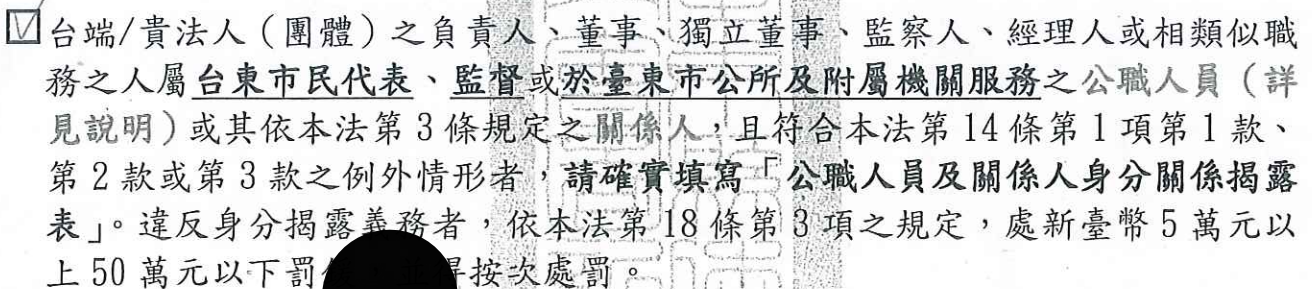 ☑台端/貴法人（團體）之負責人、董事、獨立董事、監察人、經理人或相類似職
務之人屬台東市民代表、監督或於臺東市公所及附屬機關服務之公職人員（詳
見說明）或其依本法第3條規定之關係人，且符合本法第14條第1項第1款、
第2款或第3款之例外情形者，請確實填寫「公職人員及關係人身分關係揭露
表」。違反身分揭露義務者，依本法第18條第3項之規定，處新臺幣5萬元以
上50萬元以下罰 得按次處罰。